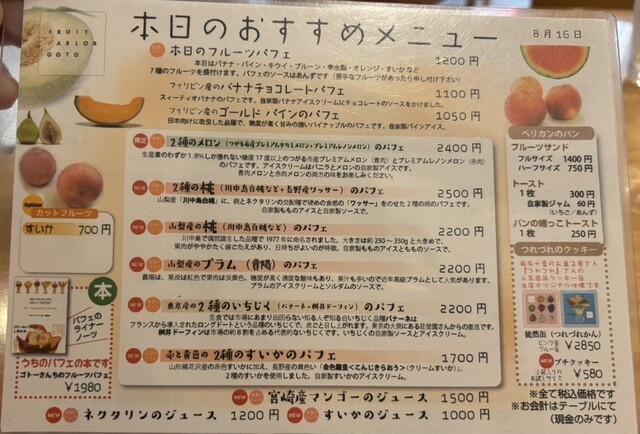 FRUIT
PARLOR
GOTO
本日のおすすめメニュー
8月16日
本日のフルーツパフェ 1200円
本日はバナナ・パイン・キウイ・プルーン・幸水梨・オレンジ・すいか など
7種のフルーツを盛付けます。パフェのソースはあんずです（苦手なフルーツがあったら申し付け下さい）
フィリピン産のバナナチョコレートパフェ 1100円
スィーティオバナナのパフェです。自家製バナナアイスクリームにチョコレートのソースをかけました。
フィリピン産のゴールドパインのパフェ 1050円
日本向けに改良した品種で、糖度が高く甘みの強いパイナップルのパフェです。自家製パインアイス。
限定 2種のメロン（つがる市産プレミアムタカミメロン＋プレミアムレノンメロン）のパフェ 2400円
生産量のわずか1.9％しか獲れない糖度17度以上のつがる市産プレミアムメロン（青肉）とプレミアムレノンメロン（赤肉）
のパフェです。アイスクリームはバニラとメロンの自家製アイスです。
青肉メロンと赤肉メロンの両方の味をお楽しみください。
NEW 2種の桃（川中島白桃など＋長野産ワッサー）のパフェ 2500円
山梨産「川中島白桃」に、桃とネクタリンの交配種で硬めの食感の「ワッサー」をのせた2種の桃のパフェです。
自家製もものアイスと自家製ソースで。
NEW 山梨産の桃（川中島白桃など）のパフェ 2200円
川中島で偶然誕生した品種で1977年に命名されました。大きさは約250～350gと大きめで、
果肉がややかたく歯ごたえがあり、日持ちがよいのが特徴。自家製もものアイスとももソースで。
NEW 山梨産のプラム（貴陽）のパフェ 2200円
貴陽は、果皮は紅色で果肉は淡黄色。糖度が高く適度な酸味もあり、果汁も多いので近年高級プラムとして人気があります。
プラムのアイスクリームとソルダムのソースです。
NEW 東京産の2種のいちじく（バナーネ＋桝井ドーフィン）のパフェ 2200円
生食では市場にあまり出回らない知る人ぞ知る白いちじく品種バナーネは
フランスから導入されたロングドートという品種のいちじくで、皮ごと召し上がれます。東京の大泉にある荘埜園さんからの直送です。
桝井ドーフィンは市場の約8割を占める代表的ないちじくです。いちじくの自家製ソースとアイスクリーム。
NEW 赤と黄色の2種のすいかのパフェ 1700円
山形尾花沢産の赤すいかに加え、長野産の黄色い「金色羅皇＜こんじきらおう＞（クリームすいか）」
2種のすいかを使用しました。自家製すいかのアイスクリーム。
NEW 宮崎産マンゴーのジュース 1500円
NEW ネクタリンのジュース 1200円
NEW すいかのジュース 1000円
Option
カットフルーツ
すいか 700円
本
パフェの
ライナー
ノーツ
うちのパフェの本です
ゴトーさんちのフルーツパフェ
￥1980
ペリカンのパン
フルーツサンド
フルサイズ 1400円
ハーフサイズ 750円
トースト
1枚 300円
自家製ジャム 60円
（いちご／あんず）
パンの端っこトースト
1枚 250円
つれづれのクッキー
「つれづれ」さんの
人気商品クッキー缶
当店オリジナル仕様です
徒然缶（つれづれかん）
ピンク缶
ブルー缶
￥2850
NEW プチクッキー
小袋入りの
お試しサイズ
￥580
※全て税込価格です
※お会計はテーブルにて
（現金のみです）